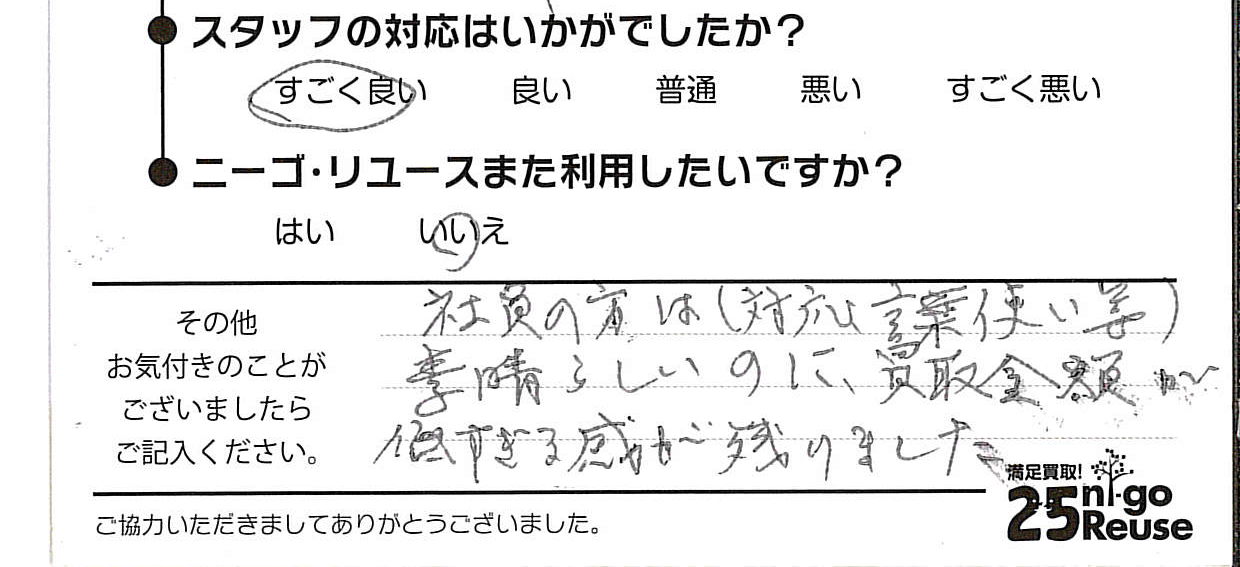 スタッフの対応はいかがでしたか？
すごく良い 良い 普通 悪い すごく悪い
ニーゴ・リユースまた利用したいですか？
はい いいえ
その他
お気付きのことが
ございましたら
ご記入ください。
社員の方は(対応、言葉使い等)
素晴らしいのに、買取金額が
低すぎる感が残りました
満足買取!
25 ni-go
Reuse
ご協力いただきましてありがとうございました。